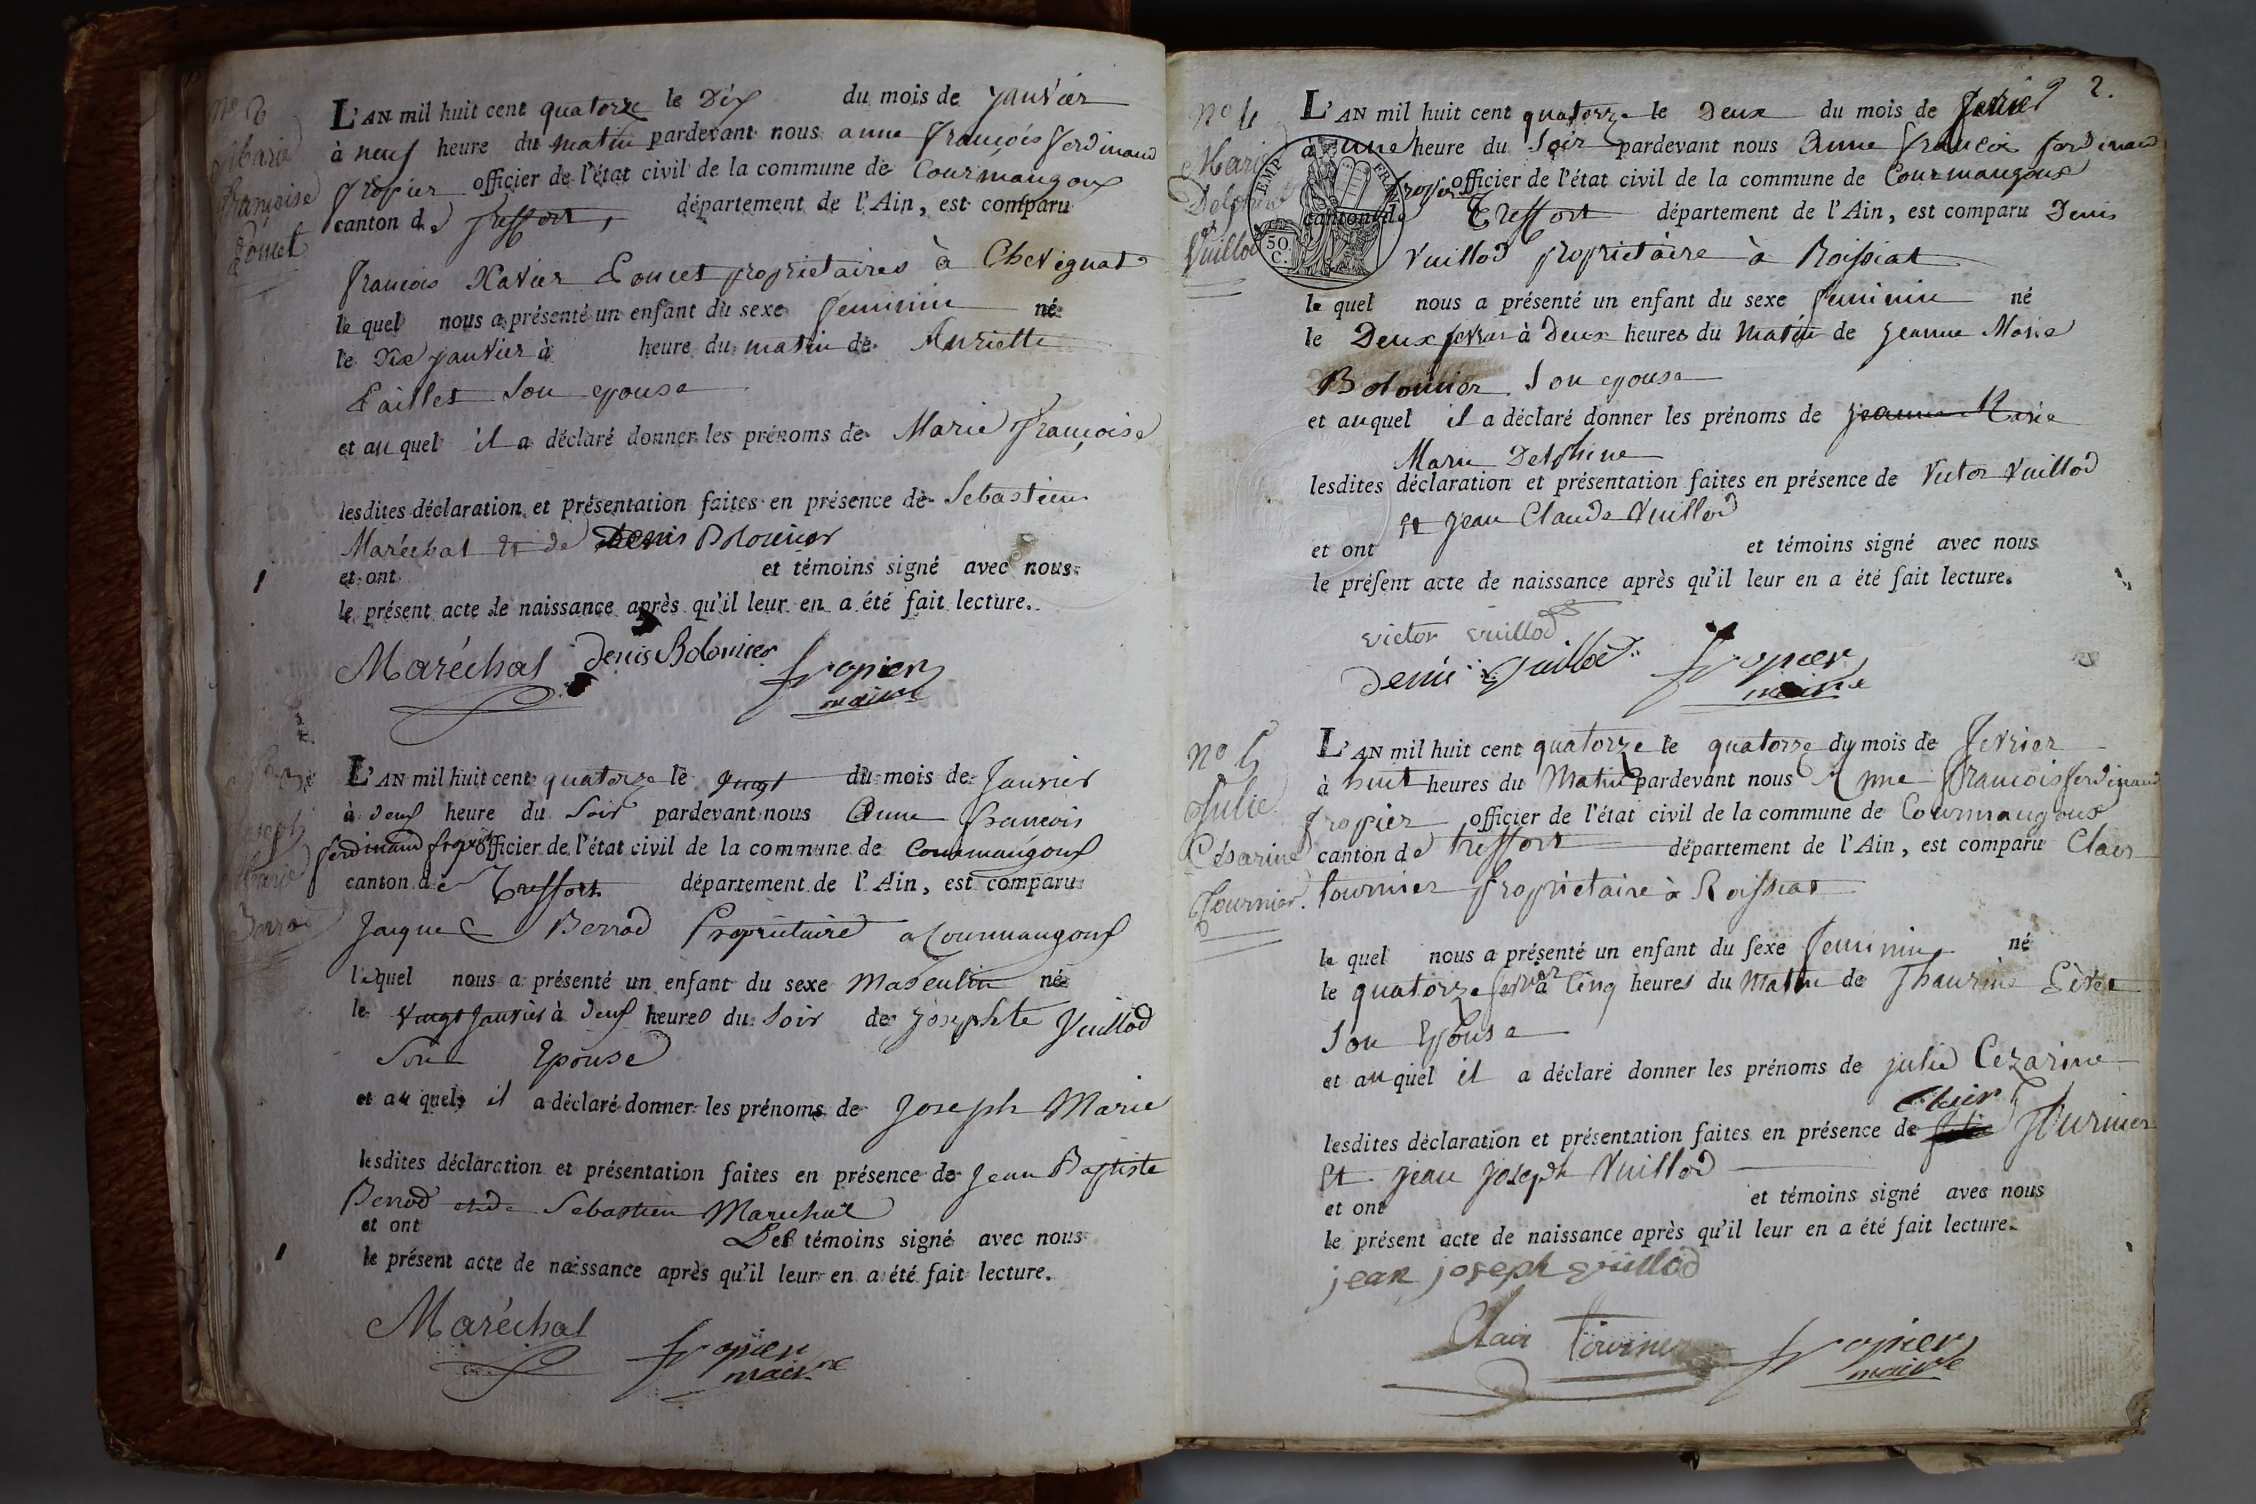 N° 2
Marie
françoise
Poncet
L'AN mil huit cent quatorze le Dix du mois de janvier
à neuf heure du matin pardevant nous anne françois ferdinand
fropier officier de l'état civil de la commune de Courmangoux
canton de Treffort, département de l'Ain, est comparu
françois Xavier Poncet proprietaires à Chevignat
le quel nous a présenté un enfant du sexe feminin né
le Dix janvier à heure du matin de Anriette
Paillet Son epouse
et au quel il a déclaré donner les prénoms de Marie françoise
lesdites déclaration et présentation faites en présence de Sebastien
Maréchal et de Denis Bolomier
et ont et témoins signé avec nous
le présent acte de naissance après qu'il leur en a été fait lecture.
Maréchal Denis Bolomier fropier
maire
joseph
Marie
Berrod
L'AN mil huit cent quatorze le vingt du mois de Janvier
à deux heure du Soir pardevant nous Anne francois
ferdinand fropier officier de l'état civil de la commune de Courmangoux
canton de Treffort département de l'Ain, est comparu
Jaque Berrod Propriétaire a Courmangoux
lequel nous a présenté un enfant du sexe Masculin né
le vingt janvier à deux heures du Soir de josephte Vuillod
Son Epouse
et au quel il a déclaré donner les prénoms de Joseph Marie
lesdites déclaration et présentation faites en présence de Jean Baptiste
Berrod et de Sebastien Marechal
et ont Les témoins signé avec nous
le présent acte de naissance après qu'il leur en a été fait lecture.
Maréchal fropier
maire
2.
N° 4
Marie
Delphine
Vuillod
EMP. FRAN.
50 C.
L'AN mil huit cent quatorze le Deux du mois de fevrier
a une heure du Soir pardevant nous Anne francois ferdinand
fropier officier de l'état civil de la commune de Courmangoux
canton de Treffort département de l'Ain, est comparu Denis
Vuillod proprietaire à Roissiat
le quel nous a présenté un enfant du sexe feminin né
le Deux fevrier à Deux heures du Matin de jeanne Marie
Bolomier Son epouse
et au quel il a déclaré donner les prénoms de jeanne Marie
Marie Delphine
lesdites déclaration et présentation faites en présence de Victor Vuillod
Et jean Claude Vuillod
et ont et témoins signé avec nous
le présent acte de naissance après qu'il leur en a été fait lecture.
victor vuillod
Denis vuillod fropier
maire
N° 5
Julie
Césarine
Fournier.
L'AN mil huit cent quatorze le quatorze du mois de fevrier
à huit heures du Matin pardevant nous Anne francois ferdinand
fropier officier de l'état civil de la commune de Courmangoux
canton de treffort département de l'Ain, est comparu Clair
fournier proprietaire à Roissiat
le quel nous a présenté un enfant du sexe feminin né
le quatorze fevrier à Cinq heures du Matin de
Son Epouse
et au quel il a déclaré donner les prénoms de julie Cezarine
Clair
lesdites déclaration et présentation faites en présence de fournier
Et jean joseph Vuillod
et ont et témoins signé avec nous
le présent acte de naissance après qu'il leur en a été fait lecture.
jean joseph vuillod
Clair fournier fropier
maire